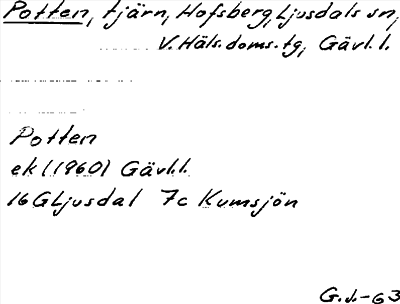 Potten, tjärn, Hofsberg, Ljusdals sn,
V. Häls. doms. tg, Gävl. l.
Potten
ek (1960) Gävl.l.
16G Ljusdal 7c Kumsjön
G.J.-63